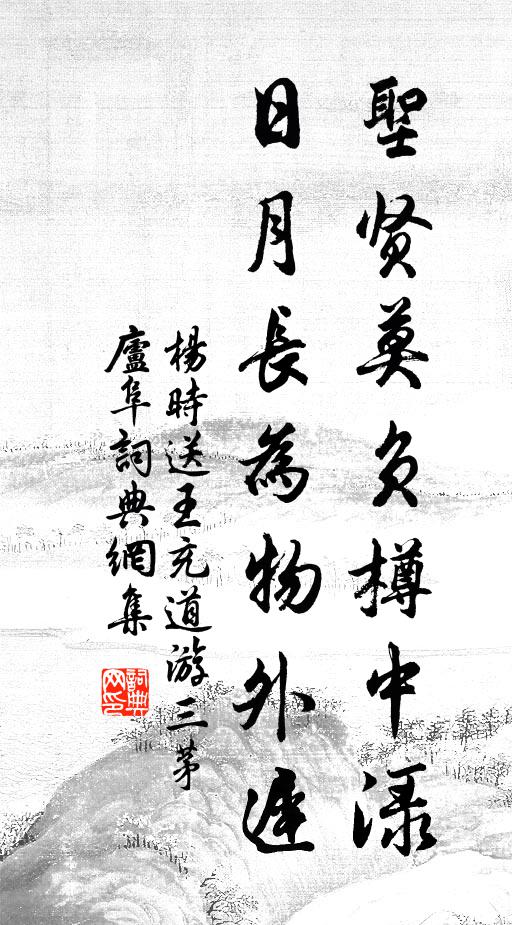 聖贤莫负樽中渌
日月長為物外遲
楊時送王充道游三茅
廬阜詞典網集
詞典网印